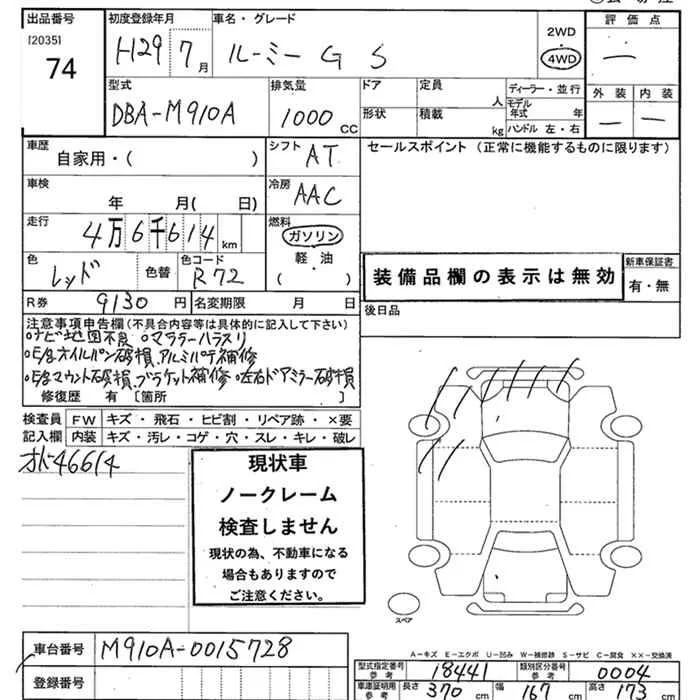 出品番号
[2035]
74
初度登録年月
H29 7月
車名・グレード
ルーミー G S
2WD
・
4WD
評価点
—
外装 内装
— —
型式
DBA-M910A
排気量
1000 CC
ドア
形状
定員
人
積載
kg
ディーラー・並行
モデル年式 年
ハンドル 左・右
車歴
自家用・( )
シフト
AT
セールスポイント (正常に機能するものに限ります)
車検
年 月( 日)
冷房
AAC
走行
4万6千614 km
燃料
ガソリン
軽油
( )
色
レッド
色替
色コード
R72
装備品欄の表示は無効
新車保証書
有・無
R券 9130 円
名変期限 月 日
後日品
注意事項申告欄 (不具合内容等は具体的に記入して下さい)
○ナビ地図不良 ○マフラー
○E/gオイルパン破損、アルミパテ補修
○E/gマウント破損、ブラケット補修 ○左右ドアミラー破損
修復歴 有 〔箇所 〕
検査員 FW キズ・飛石・ヒビ割・リペア跡・×要
記入欄 内装 キズ・汚レ・コゲ・穴・スレ・キレ・破レ
オド46614
現状車
ノークレーム
検査しません
現状の為、不動車になる
場合もありますので
ご注意ください。
スペア
A-キズ E-エクボ U-凹み W-補修跡 S-サビ C-腐食 ××-交換済
車台番号 M910A-0015728
登録番号
型式指定番号 参考 18441
類別区分番号 参考 0004
車庫証明用 参考 長さ 370 cm 幅 167 cm 高さ 173 cm